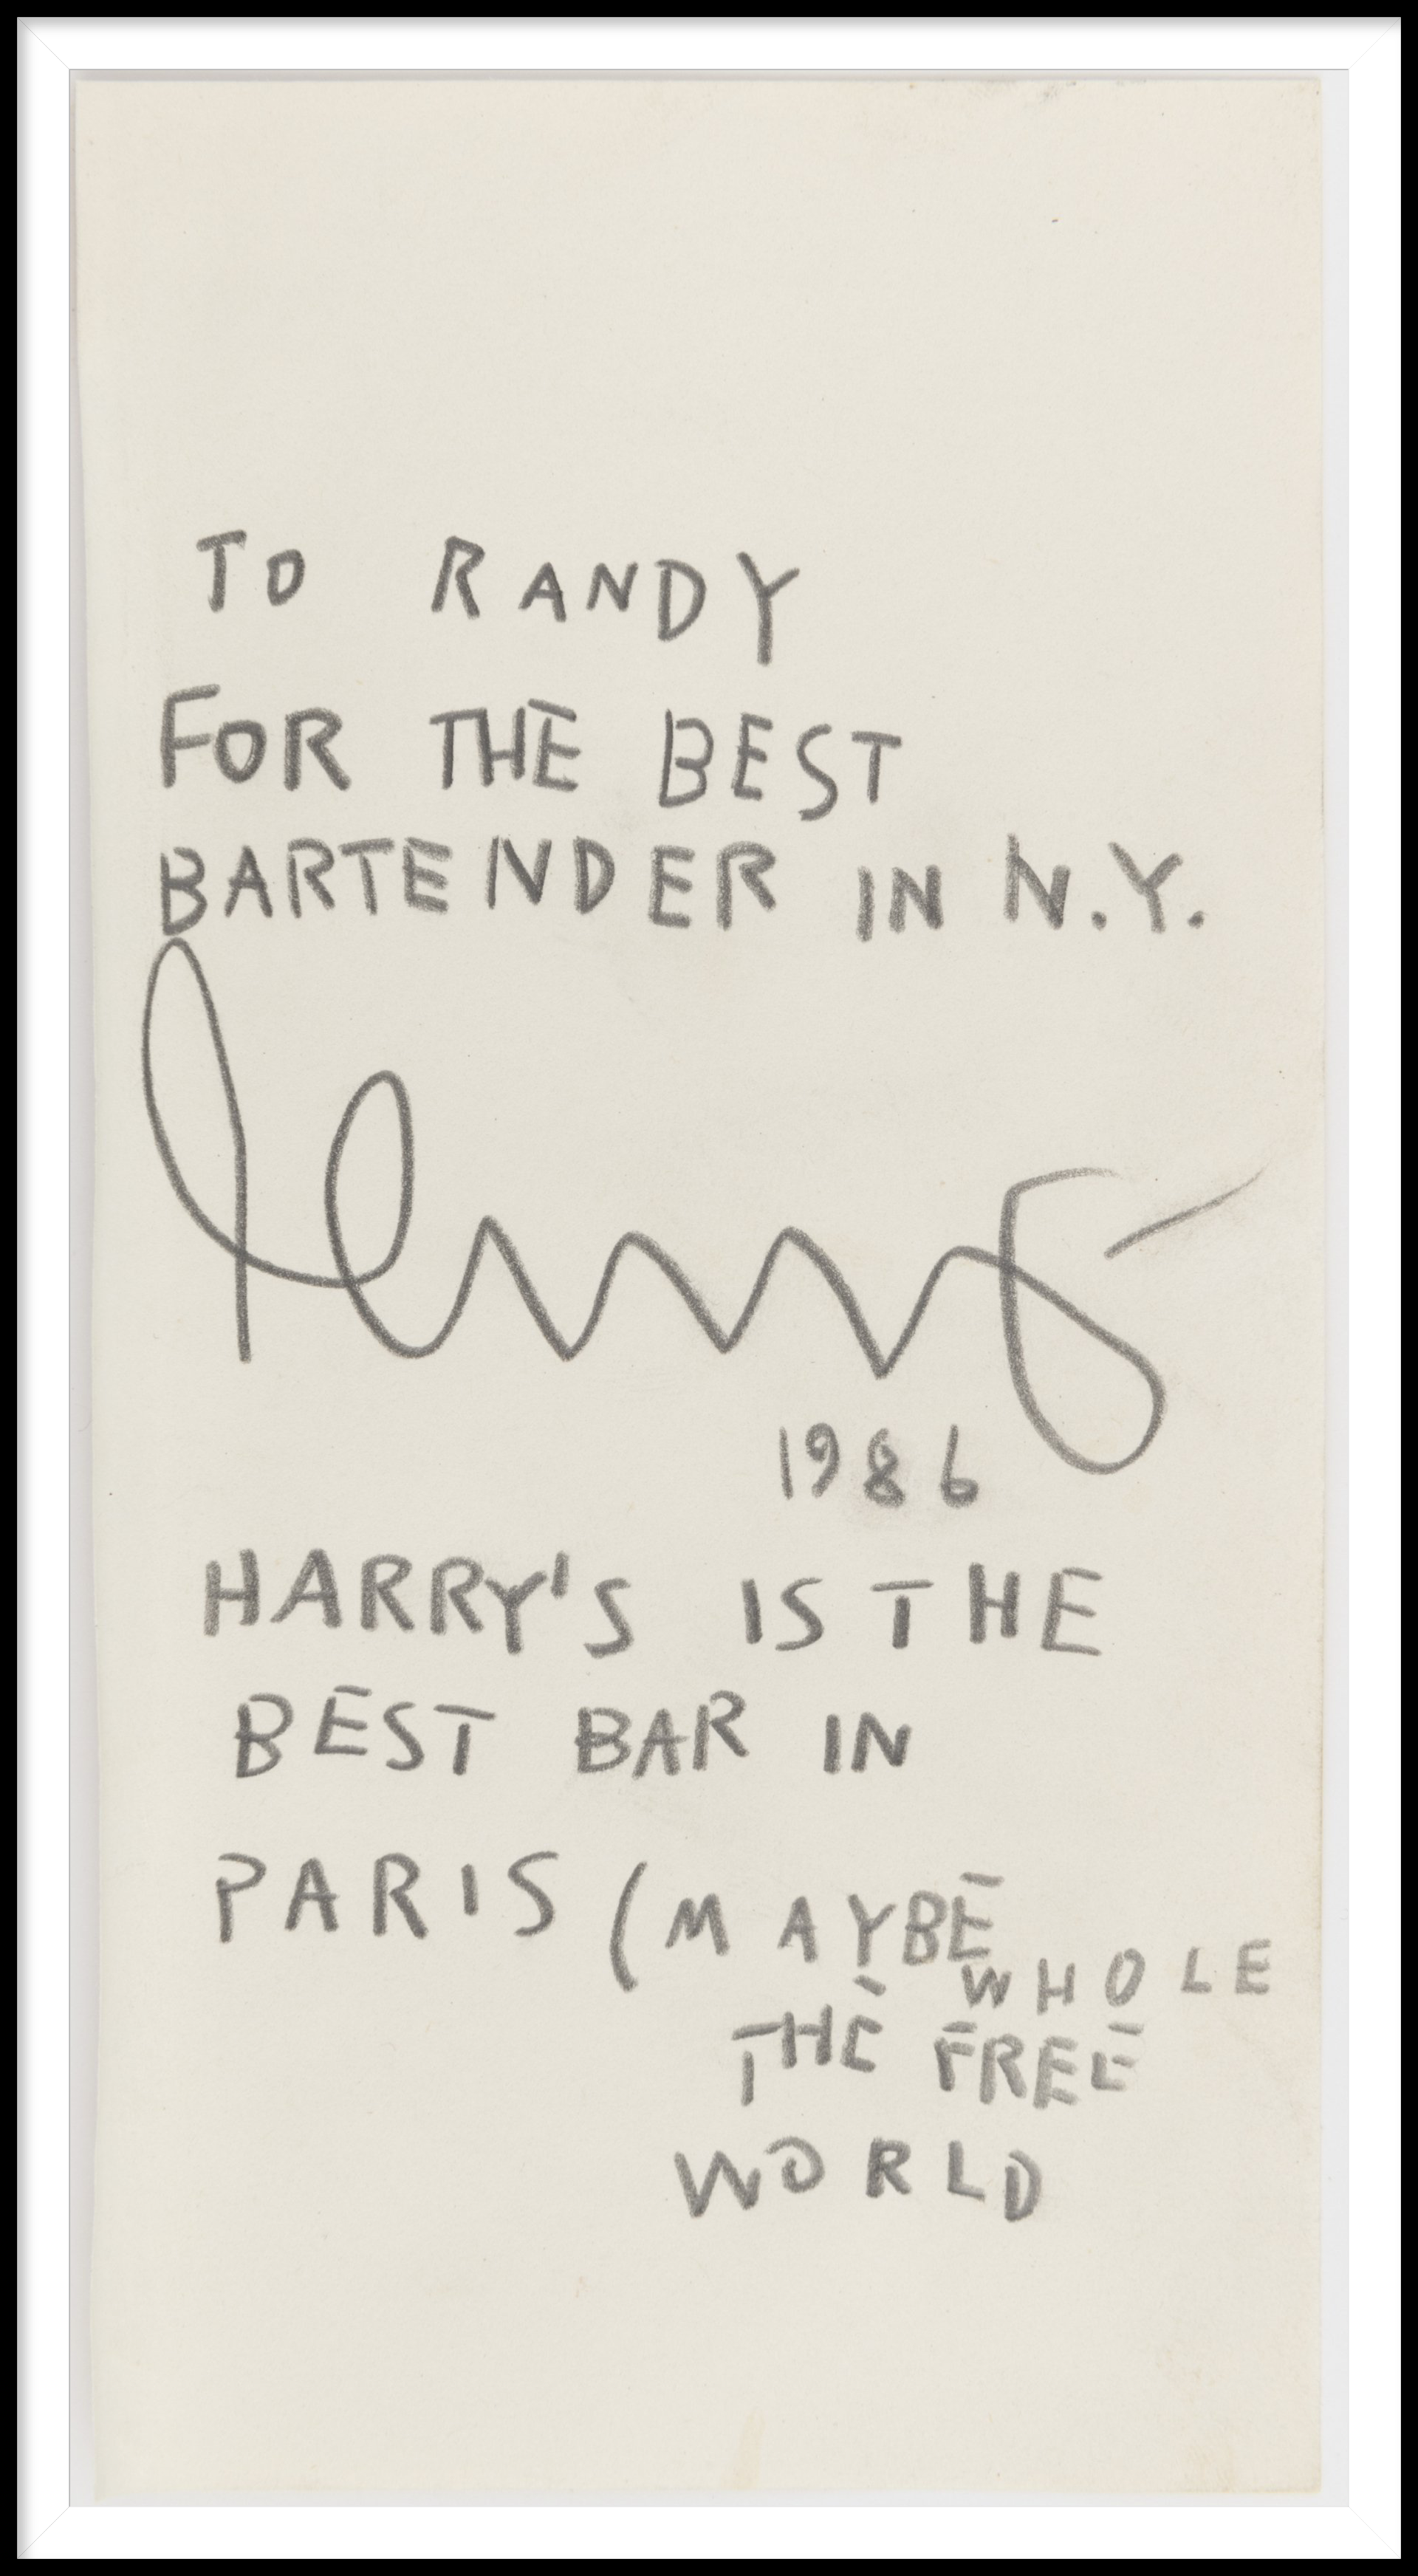 TO RANDY
FOR THE BEST
BARTENDER IN N.Y.
1986
HARRY'S IS THE
BEST BAR IN
PARIS (MAYBE
WHOLE
THE FREE
WORLD